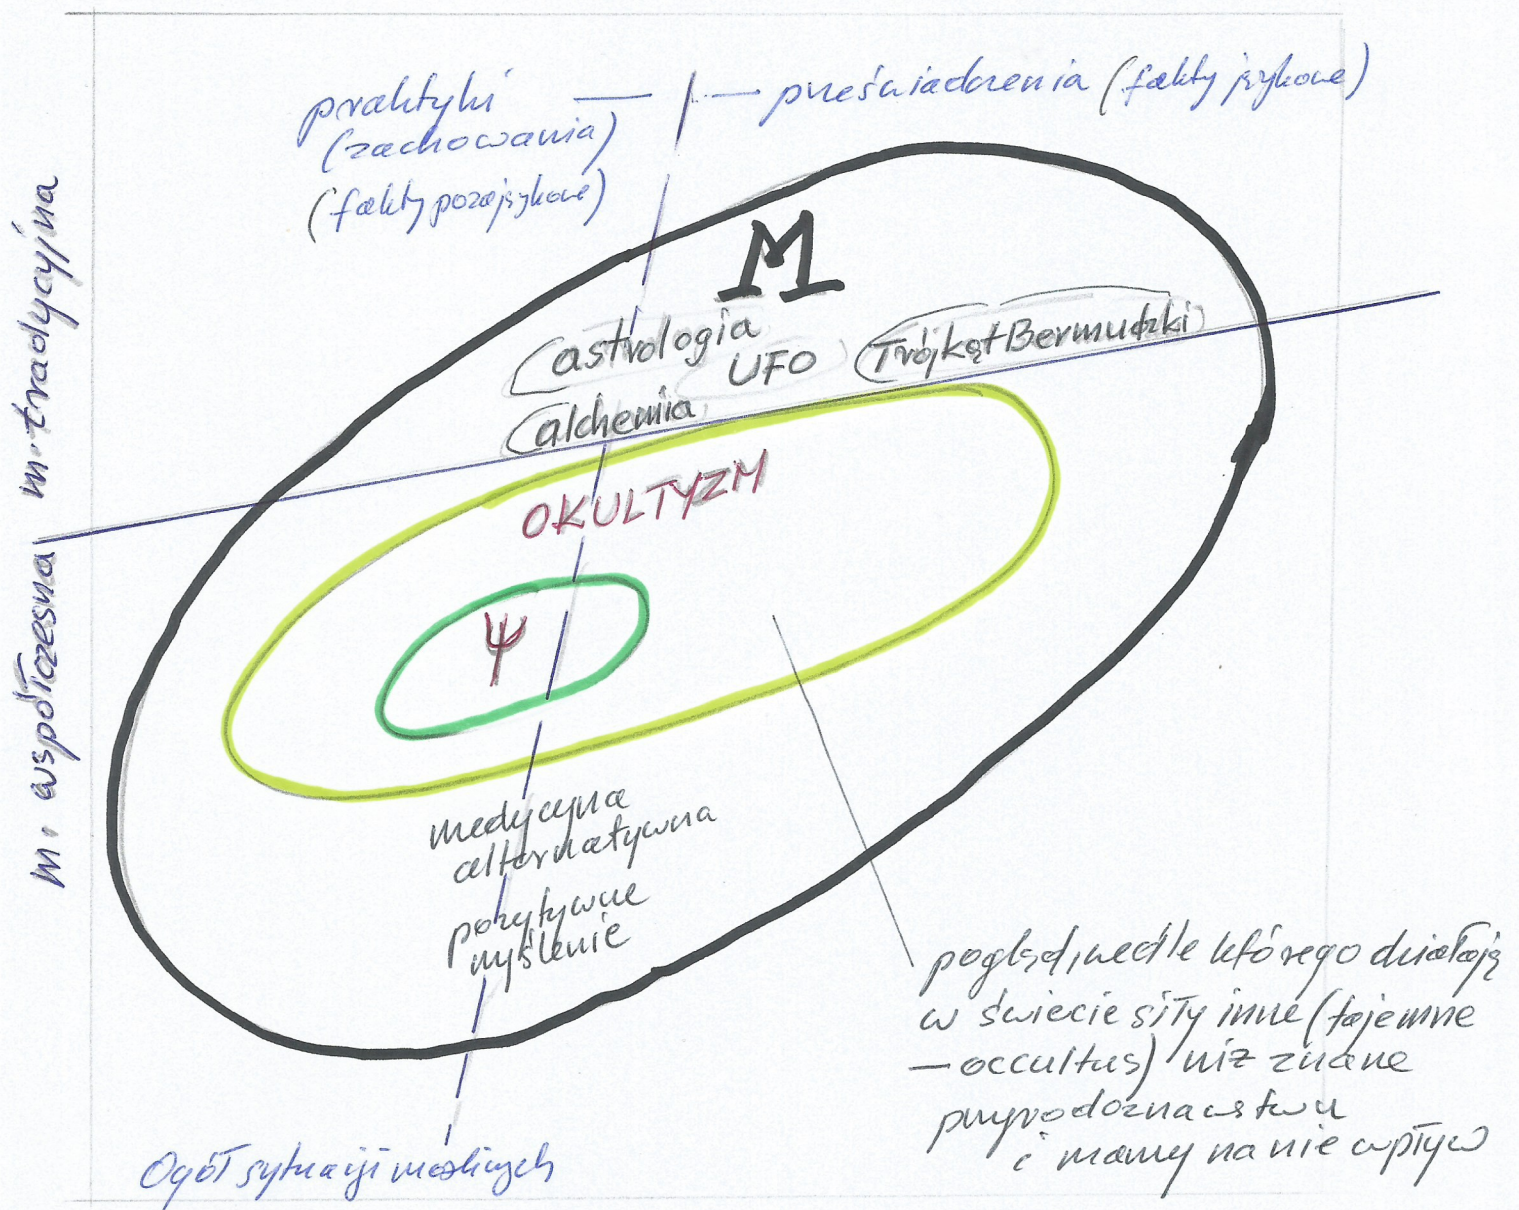 praktyki
(zachowania)
(fakty pozajęzykowe)
przeświadczenia (fakty językowe)
m. tradycyjna
m. współczesna
M
astrologia
UFO
Trójkąt Bermudzki
alchemia
OKULTYZM
Ψ
medycyna
alternatywna
pozytywne
myślenie
pogląd, wedle którego działają
w świecie siły inne (tajemne
— occultus) niż znane
przyrodoznawstwu
i mamy na nie wpływ
Ogół sytuacji magicznych